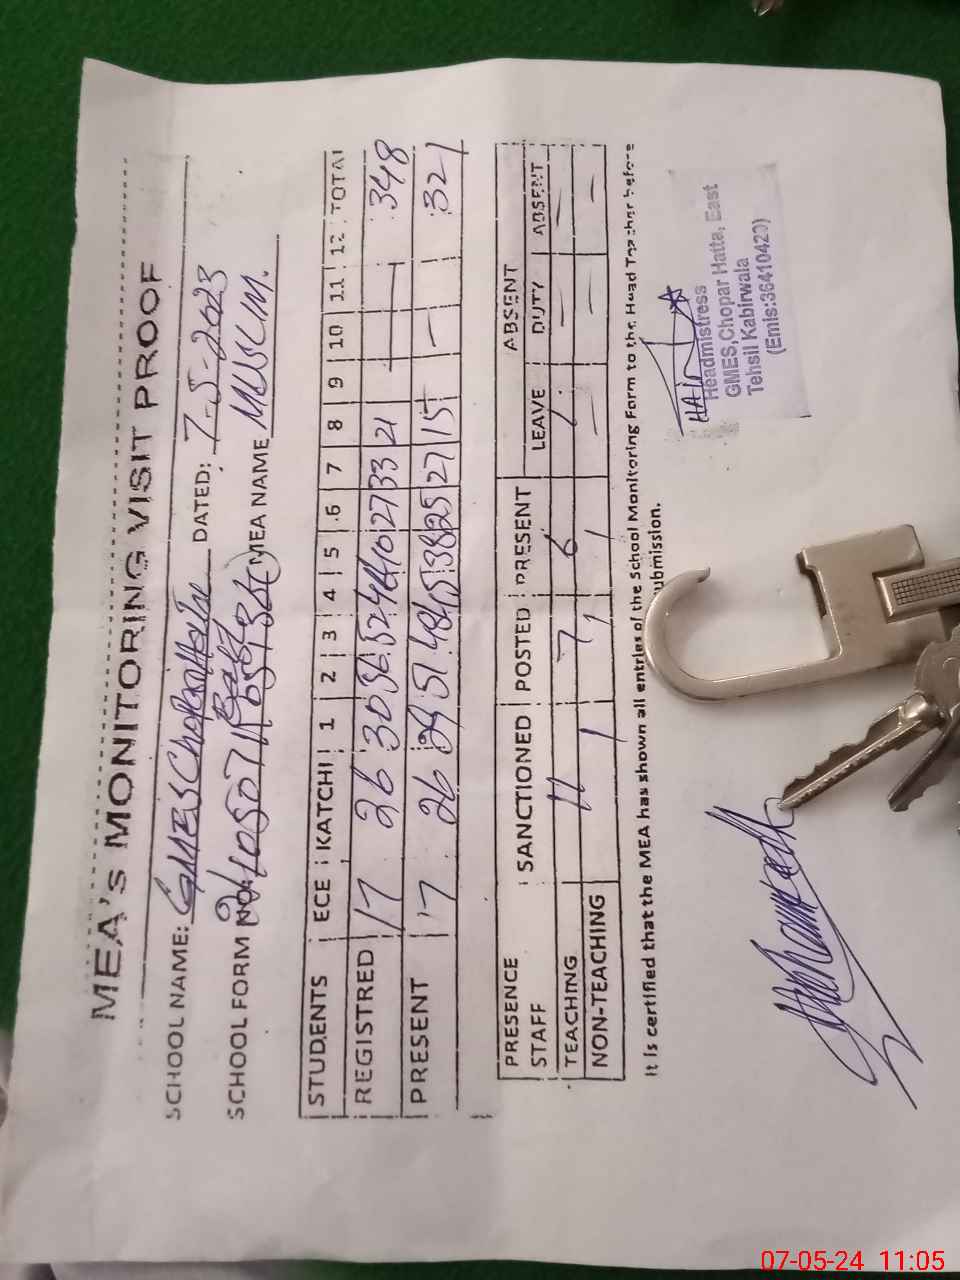 MEA's MONITORING VISIT PROOF
SCHOOL NAME: GMES Chopar Hatta DATED: 7-5-2023
East
SCHOOL FORM NO: MEA NAME MUSLIM.
STUDENTS ECE KATCHI 1 2 3 4 5 6 7 8 9 10 11 12 TOTAL
REGISTRED 17 26 30 50 52 46 40 27 33 21 — 348
PRESENT 17 26 51 48 45 38 25 27 15 — 321
PRESENCE ABSENT
STAFF SANCTIONED POSTED PRESENT LEAVE DUTY ABSENT
TEACHING 11 7 6 1 — —
NON-TEACHING 1 1 1 — — —
It is certified that the MEA has shown all entries of the School Monitoring Form to the Head Teacher before
ubmission.
Headmistress
GMES,Chopar Hatta, East
Tehsil Kabirwala
(Emis:36410420)
07-05-24 11:05